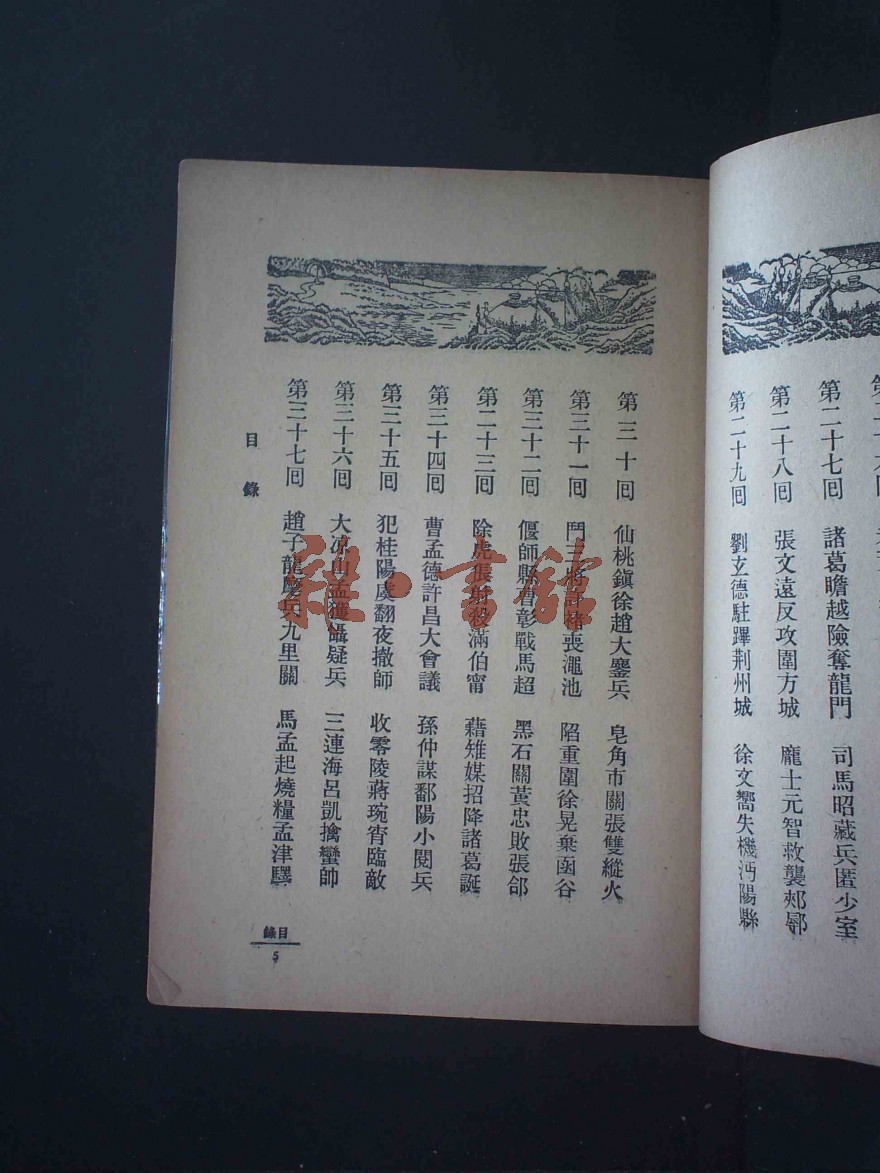 第二十七囘 諸葛瞻越險奪龍門 司馬昭藏兵匿少室
第二十八囘 張文遠反攻圍方城 龐士元智救襲郟鄏
第二十九囘 劉玄德駐蹕荆州城 徐文嚮失機沔陽縣
第三十囘 仙桃鎭徐趙大鏖兵 皂角市關張雙縱火
第三十一囘 鬥三將許褚喪澠池 陷重圍徐晃棄函谷
第三十二囘 偃師縣曹彰戰馬超 黑石關黃忠敗張郃
第二十三囘 除虎張射殺滿伯甯 藉雉媒招降諸葛誕
第三十四囘 曹孟德許昌大會議 孫仲謀鄱陽小閱兵
第三十五囘 犯桂陽虞翻夜撤師 收零陵蔣琬宵臨敵
第三十六囘 大凉山孟獲攝疑兵 三連海呂凱擒蠻帥
第三十七囘 趙子龍鏖兵九里關 馬孟起燒糧孟津驛
目錄
目錄
5
雜·書館